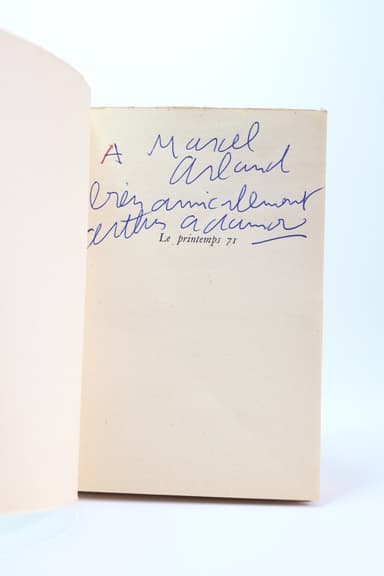 A Marcel
Arland
très amicalement
arthur adamov
Le printemps 71